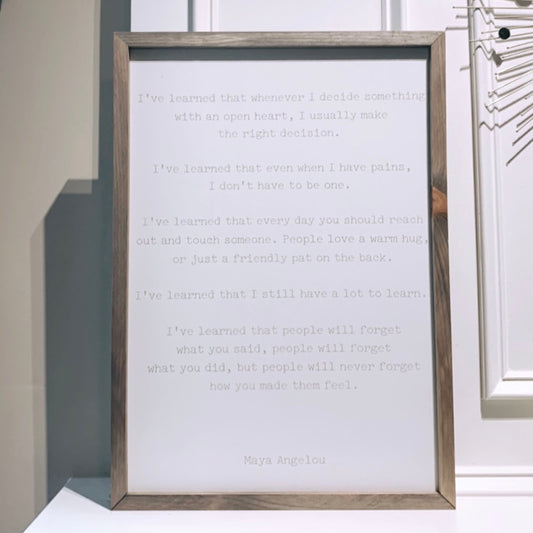 I've learned that whenever I decide something
with an open heart, I usually make
the right decision.
I've learned that even when I have pains,
I don't have to be one.
I've learned that every day you should reach
out and touch someone. People love a warm hug,
or just a friendly pat on the back.
I've learned that I still have a lot to learn.
I've learned that people will forget
what you said, people will forget
what you did, but people will never forget
how you made them feel.
Maya Angelou